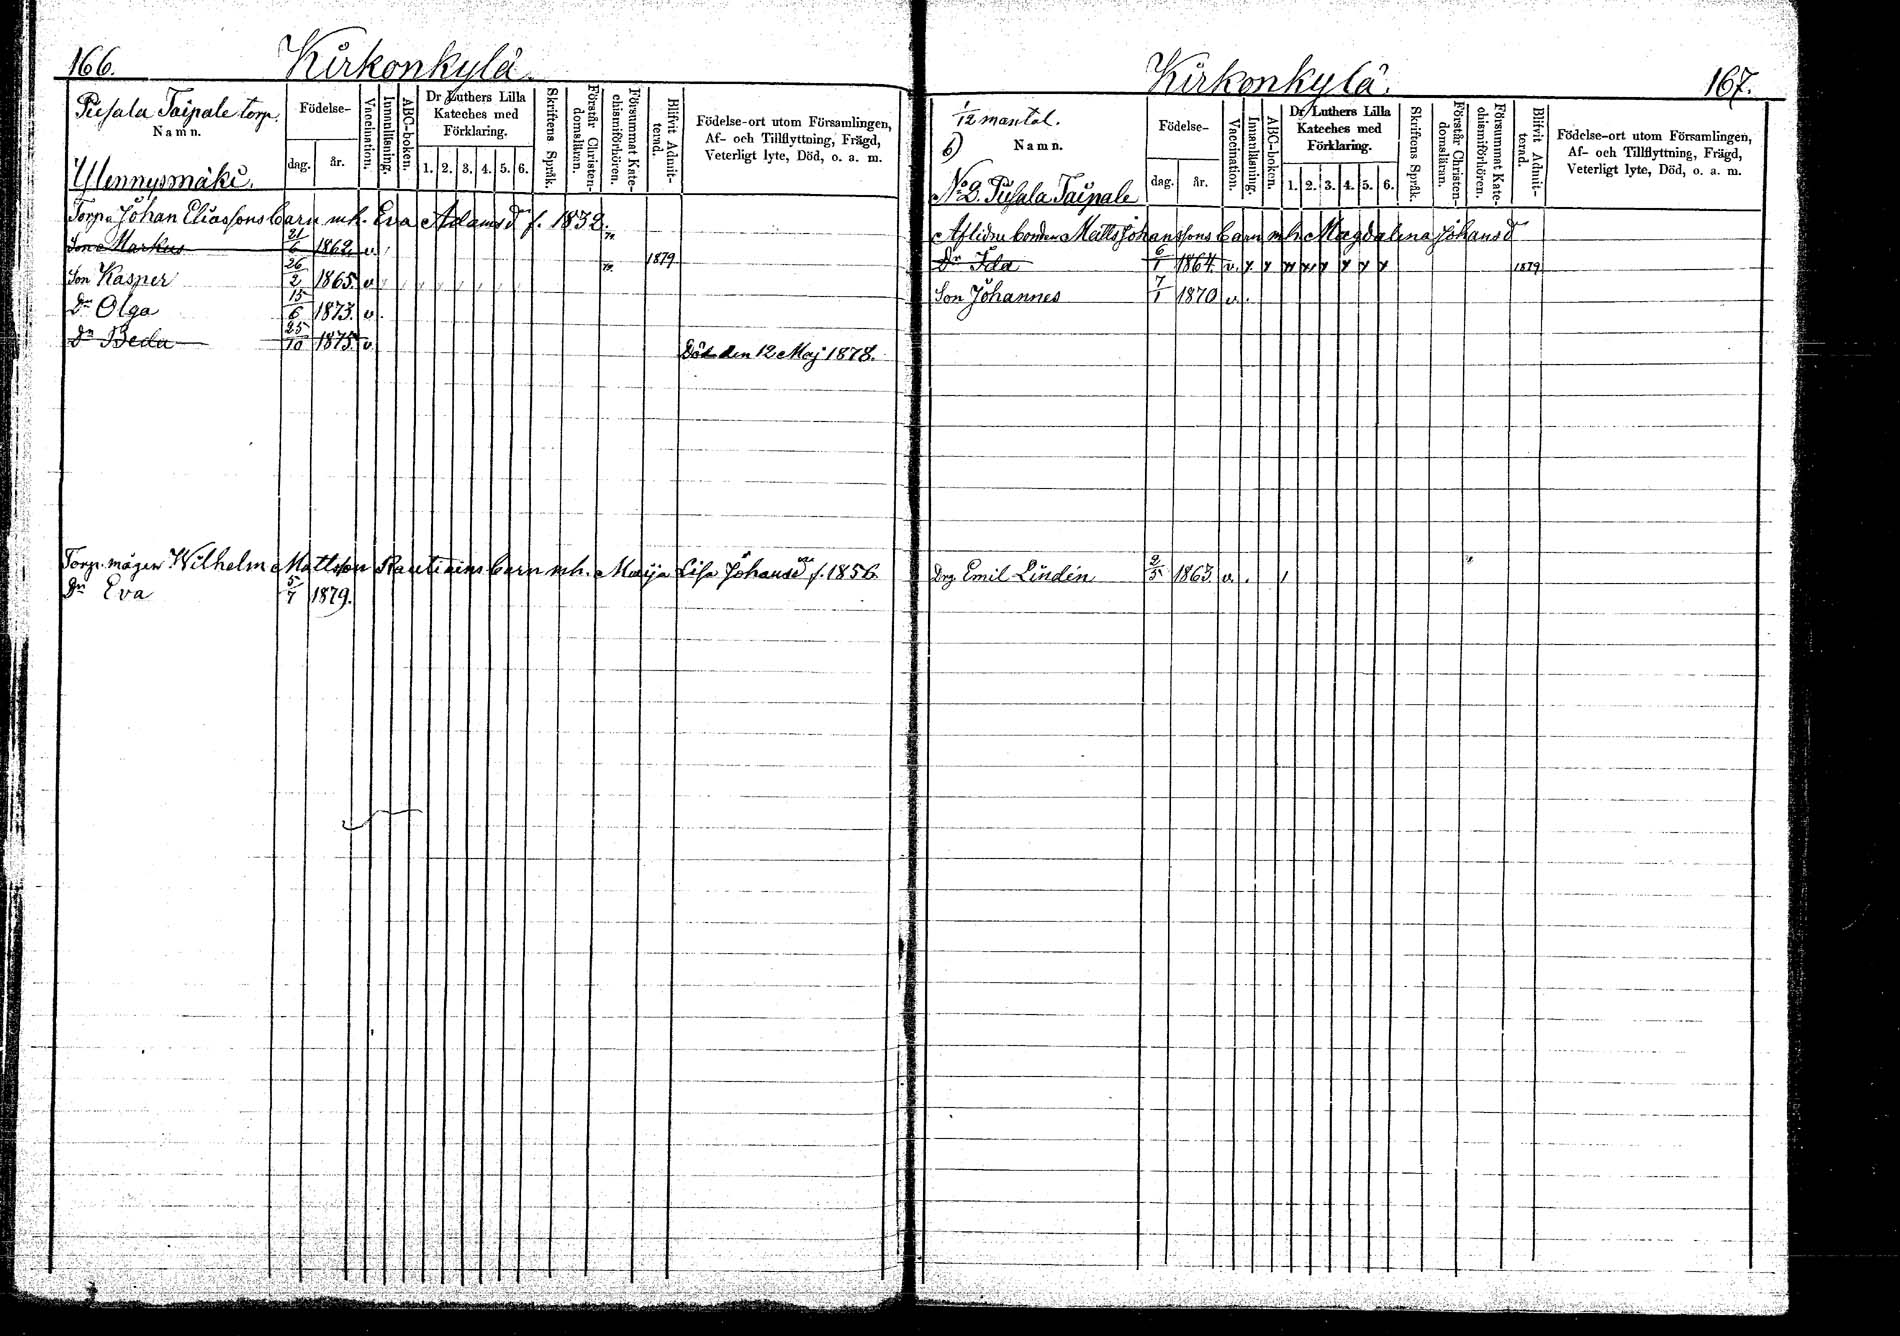 166.
Kirkonkylä.
Piesala Taipale torp.
Namn.
Ylennysmäki.
Födelse-
dag. år.
Vaccination.
Innanläsning.
ABC-boken.
Dr Luthers Lilla
Kateches med
Förklaring.
1. 2. 3. 4. 5. 6.
Skriftens Språk.
Förstår Christen-
domsläran.
Försummat Kate-
chismiförhören.
Blifvit Admit-
terad.
Födelse-ort utom Församlingen,
Af- och Tillflyttning, Frägd,
Veterligt lyte, Död, o. a. m.
Torp. Johan Eliassons barn m.h. Eva Adamsdr f. 1832.
Son Markus 21/6 1862 v.
Son Kasper 26/2 1865. v 1879
Dr Olga 15/6 1873. v.
Dr Beda 25/10 1875. v. Död den 12 Maj 1878.
Torp. mågen Wilhelm Mattsson Rautiains barn m.h. Maija Lisa Johansdr f. 1856.
Dr Eva 5/7 1879.
Kirkonkylä.
167.
1/12 mantal.
b)
Namn.
No 2. Piesala Taipale
Födelse-
dag. år.
Vaccination.
Innanläsning.
ABC-boken.
Dr Luthers Lilla
Kateches med
Förklaring.
1. 2. 3. 4. 5. 6.
Skriftens Språk.
Förstår Christen-
domsläran.
Försummat Kate-
chismiförhören.
Blifvit Admit-
terad.
Födelse-ort utom Församlingen,
Af- och Tillflyttning, Frägd,
Veterligt lyte, Död, o. a. m.
Aflidne bonden Matts Johanssons barn m.h. Magdalena Johansd
Dr Ida 6/1 1864. v. x x x x x x x x 1879
Son Johannes 7/1 1870 v.
Drg. Emil Lindén 2/5 1863. v.